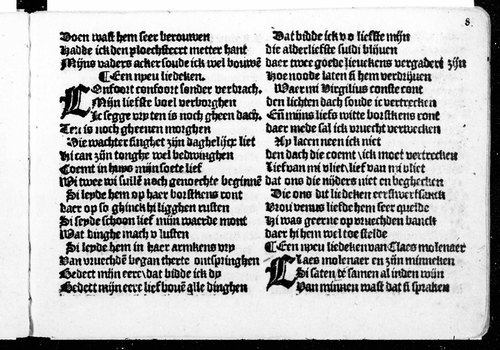 8.
Doen wast hem seer berouwen
Hadde ick den ploechsteert metter hant
Mijns vaders acker soude ick wel bouwē
¶Een nyeu liedeken.
COnfoort confoort sonder verdrach.
Mijn liefste boel verborghen
Ic segge vry ten is noch gheen dach.
Ten is noch gheenen morghen
Die wachter singhet zijn daghelijcx liet
Hi can zijn tonghe wel bedwinghen
Coemt in huys mijn soete lief
Wi twee wi sullē noch genoechte beginnē
Si leyde hem op haer borstkens ront
daer op so ghinck hi ligghen rusten
Si seyde schoon lief mijn waerde mont
Wat dinghe mach v lusten
Si leyde hem in haer armkens vry
Van vruechdē began therte ontspringhen
Bedect mijn eere dat bidde ick dy
Bedect mijn eere lief bouē alle dinghen
Dat bidde ick v o liefste mijn
die alderliefste suldi blijuen
daer twee goede lieuekens vergadert zijn
Hoe noode laten si hem verdrijuen
Waer mi Virgilius conste cont
den lichten dach soude ic vertrecken
En mijns liefs witte borstkens ront
daer mede sal ick vruecht verwecken
Ay lacen neen ick niet
den dach die coemt ick moet vertrecken
Lief van mi vliet lief van mi vliet
dat ons die nijders niet en beghecken
Die ons dit liedeken eerstwerf sanck
Vrou venus liefde hem seer quelde
Hi was geerne op vruechden banck
daer hi hem wel toe stelde
¶Een nyeu liedeken van Claes molenaer
CLaes molenaer en zijn minneken
Si saten tsamen al inden wijn
Van minnen wast dat si spraken